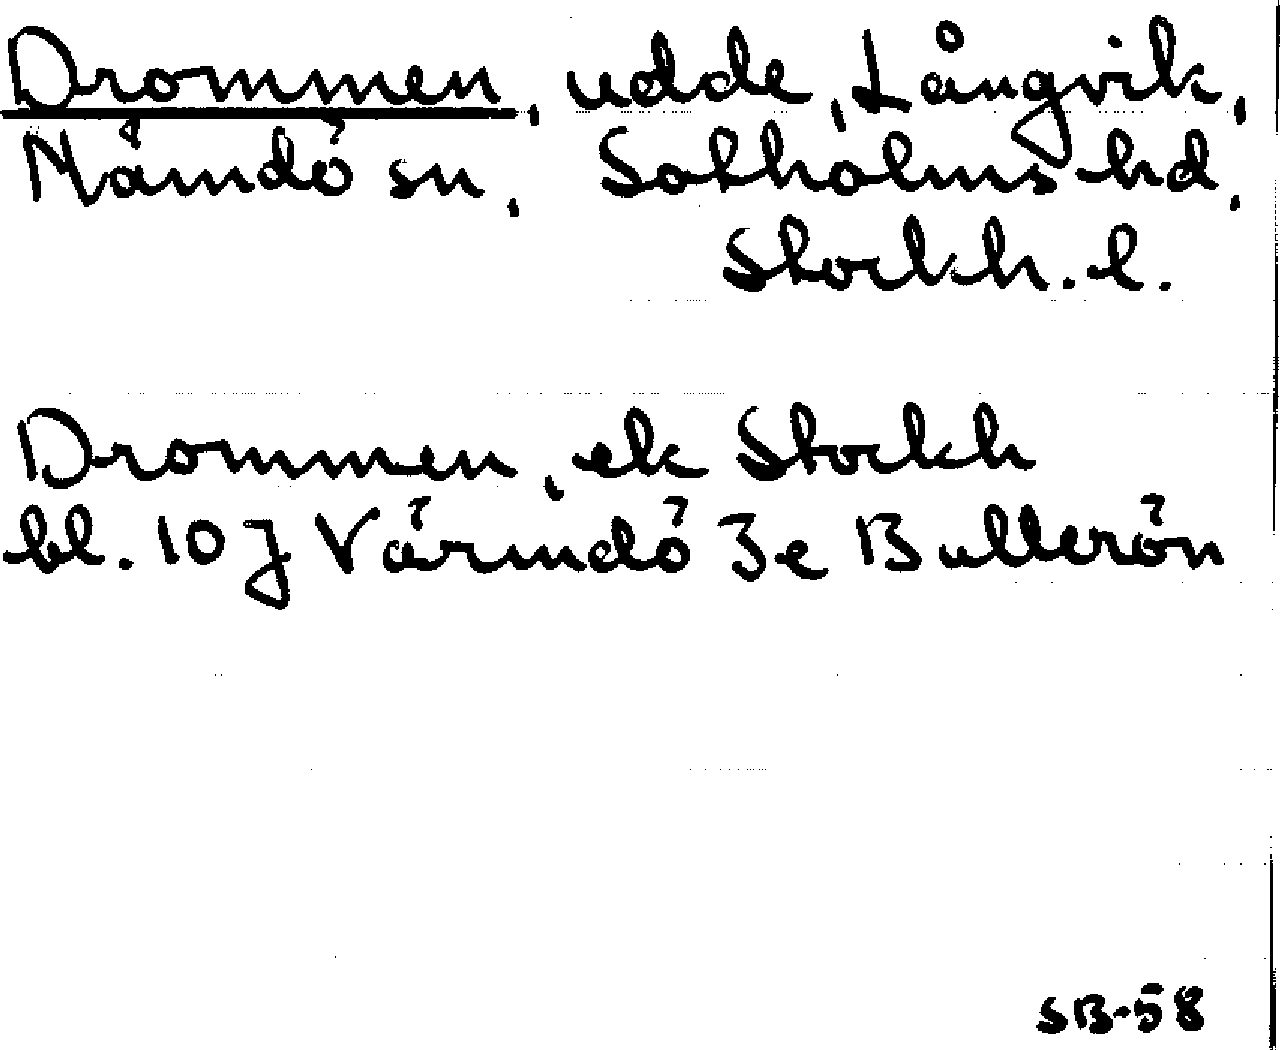 Drommen, udde, Långvik,
Nämdö sn, Sotholms hd,
Stockh. l.
Drommen, ek Stockh
bl. 10J Värmdö 3e Bullerön
SB-58